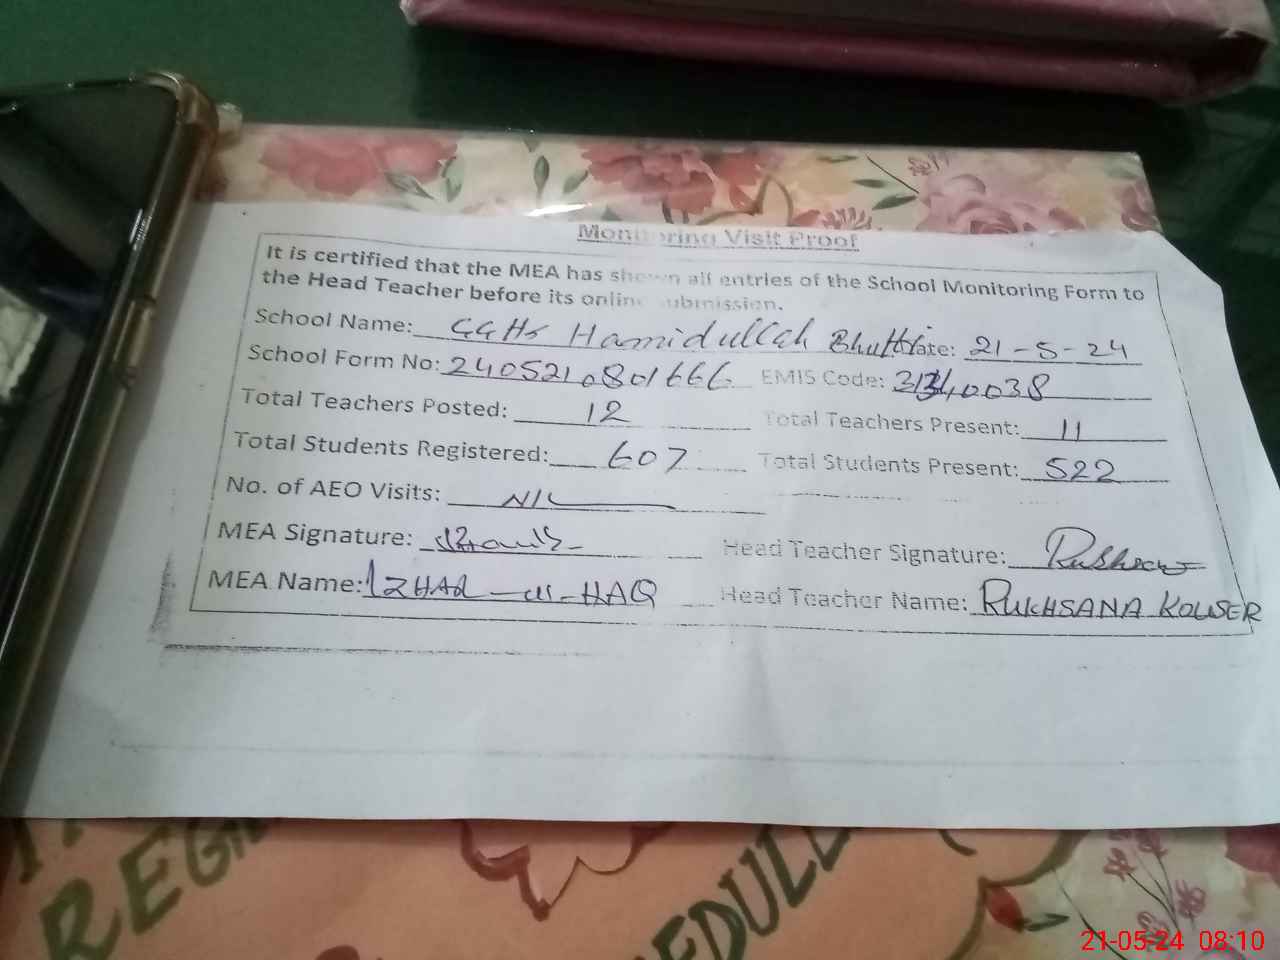 Monitoring Visit Proof
It is certified that the MEA has shown all entries of the School Monitoring Form to
the Head Teacher before its online submission.
School Name: GGHS Hamidullah Date: 21-5-24
School Form No: 2405210801666 EMIS Code:
Total Teachers Posted: 12 Total Teachers Present: 11
Total Students Registered: 607 Total Students Present: 522
No. of AEO Visits: NIL
MEA Signature: Head Teacher Signature:
MEA Name: IZHAR-ul-HAQ Head Teacher Name: RUKHSANA KOUSER
21-05-24 08:10